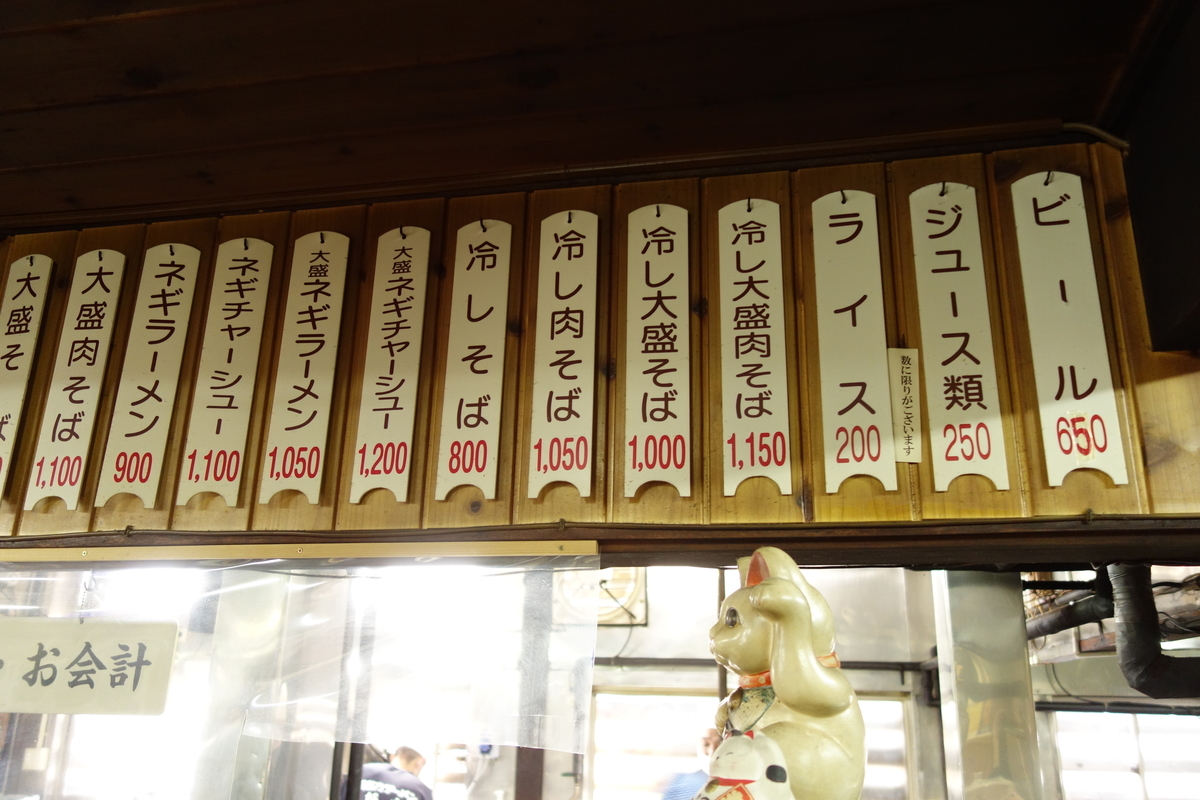 大盛そば
大盛肉そば
1,100
ネギラーメン
900
ネギチャーシュー
1,100
大盛ネギラーメン
1,050
大盛ネギチャーシュー
1,200
冷しそば
800
冷し肉そば
1,050
冷し大盛そば
1,000
冷し大盛肉そば
1,150
ライス
200
数に限りがございます
ジュース類
250
ビール
650
・お会計